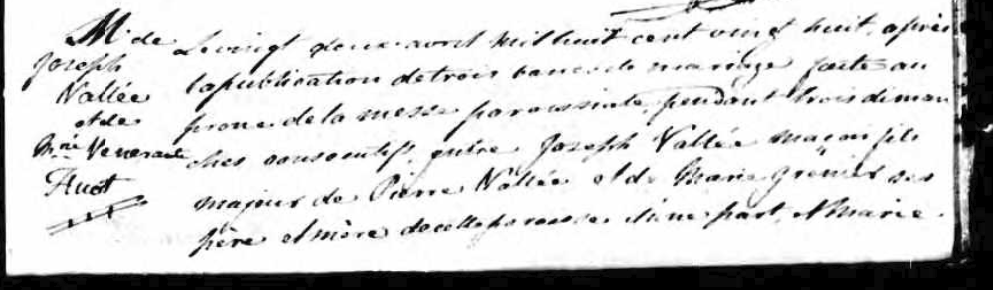 M. de
Joseph
Vallée
et de
Mrie Venerante
Huot
Le vingt deux avril mil huit cent vingt huit, après
la publication de trois bancs de mariage faite au
prone de la messe paroissiale, pendant trois diman
ches consecutifs, entre Joseph Vallée maçon fils
majeur de Pierre Vallée et de Marie Grenier ses
père et mère de cette paroisse d'une part, et Marie